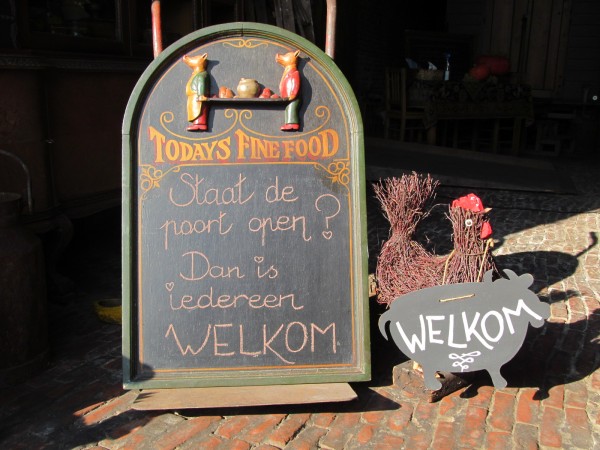 TODAYS FINE FOOD
Staat de
poort open?
Dan is
iedereen
WELKOM
WELKOM